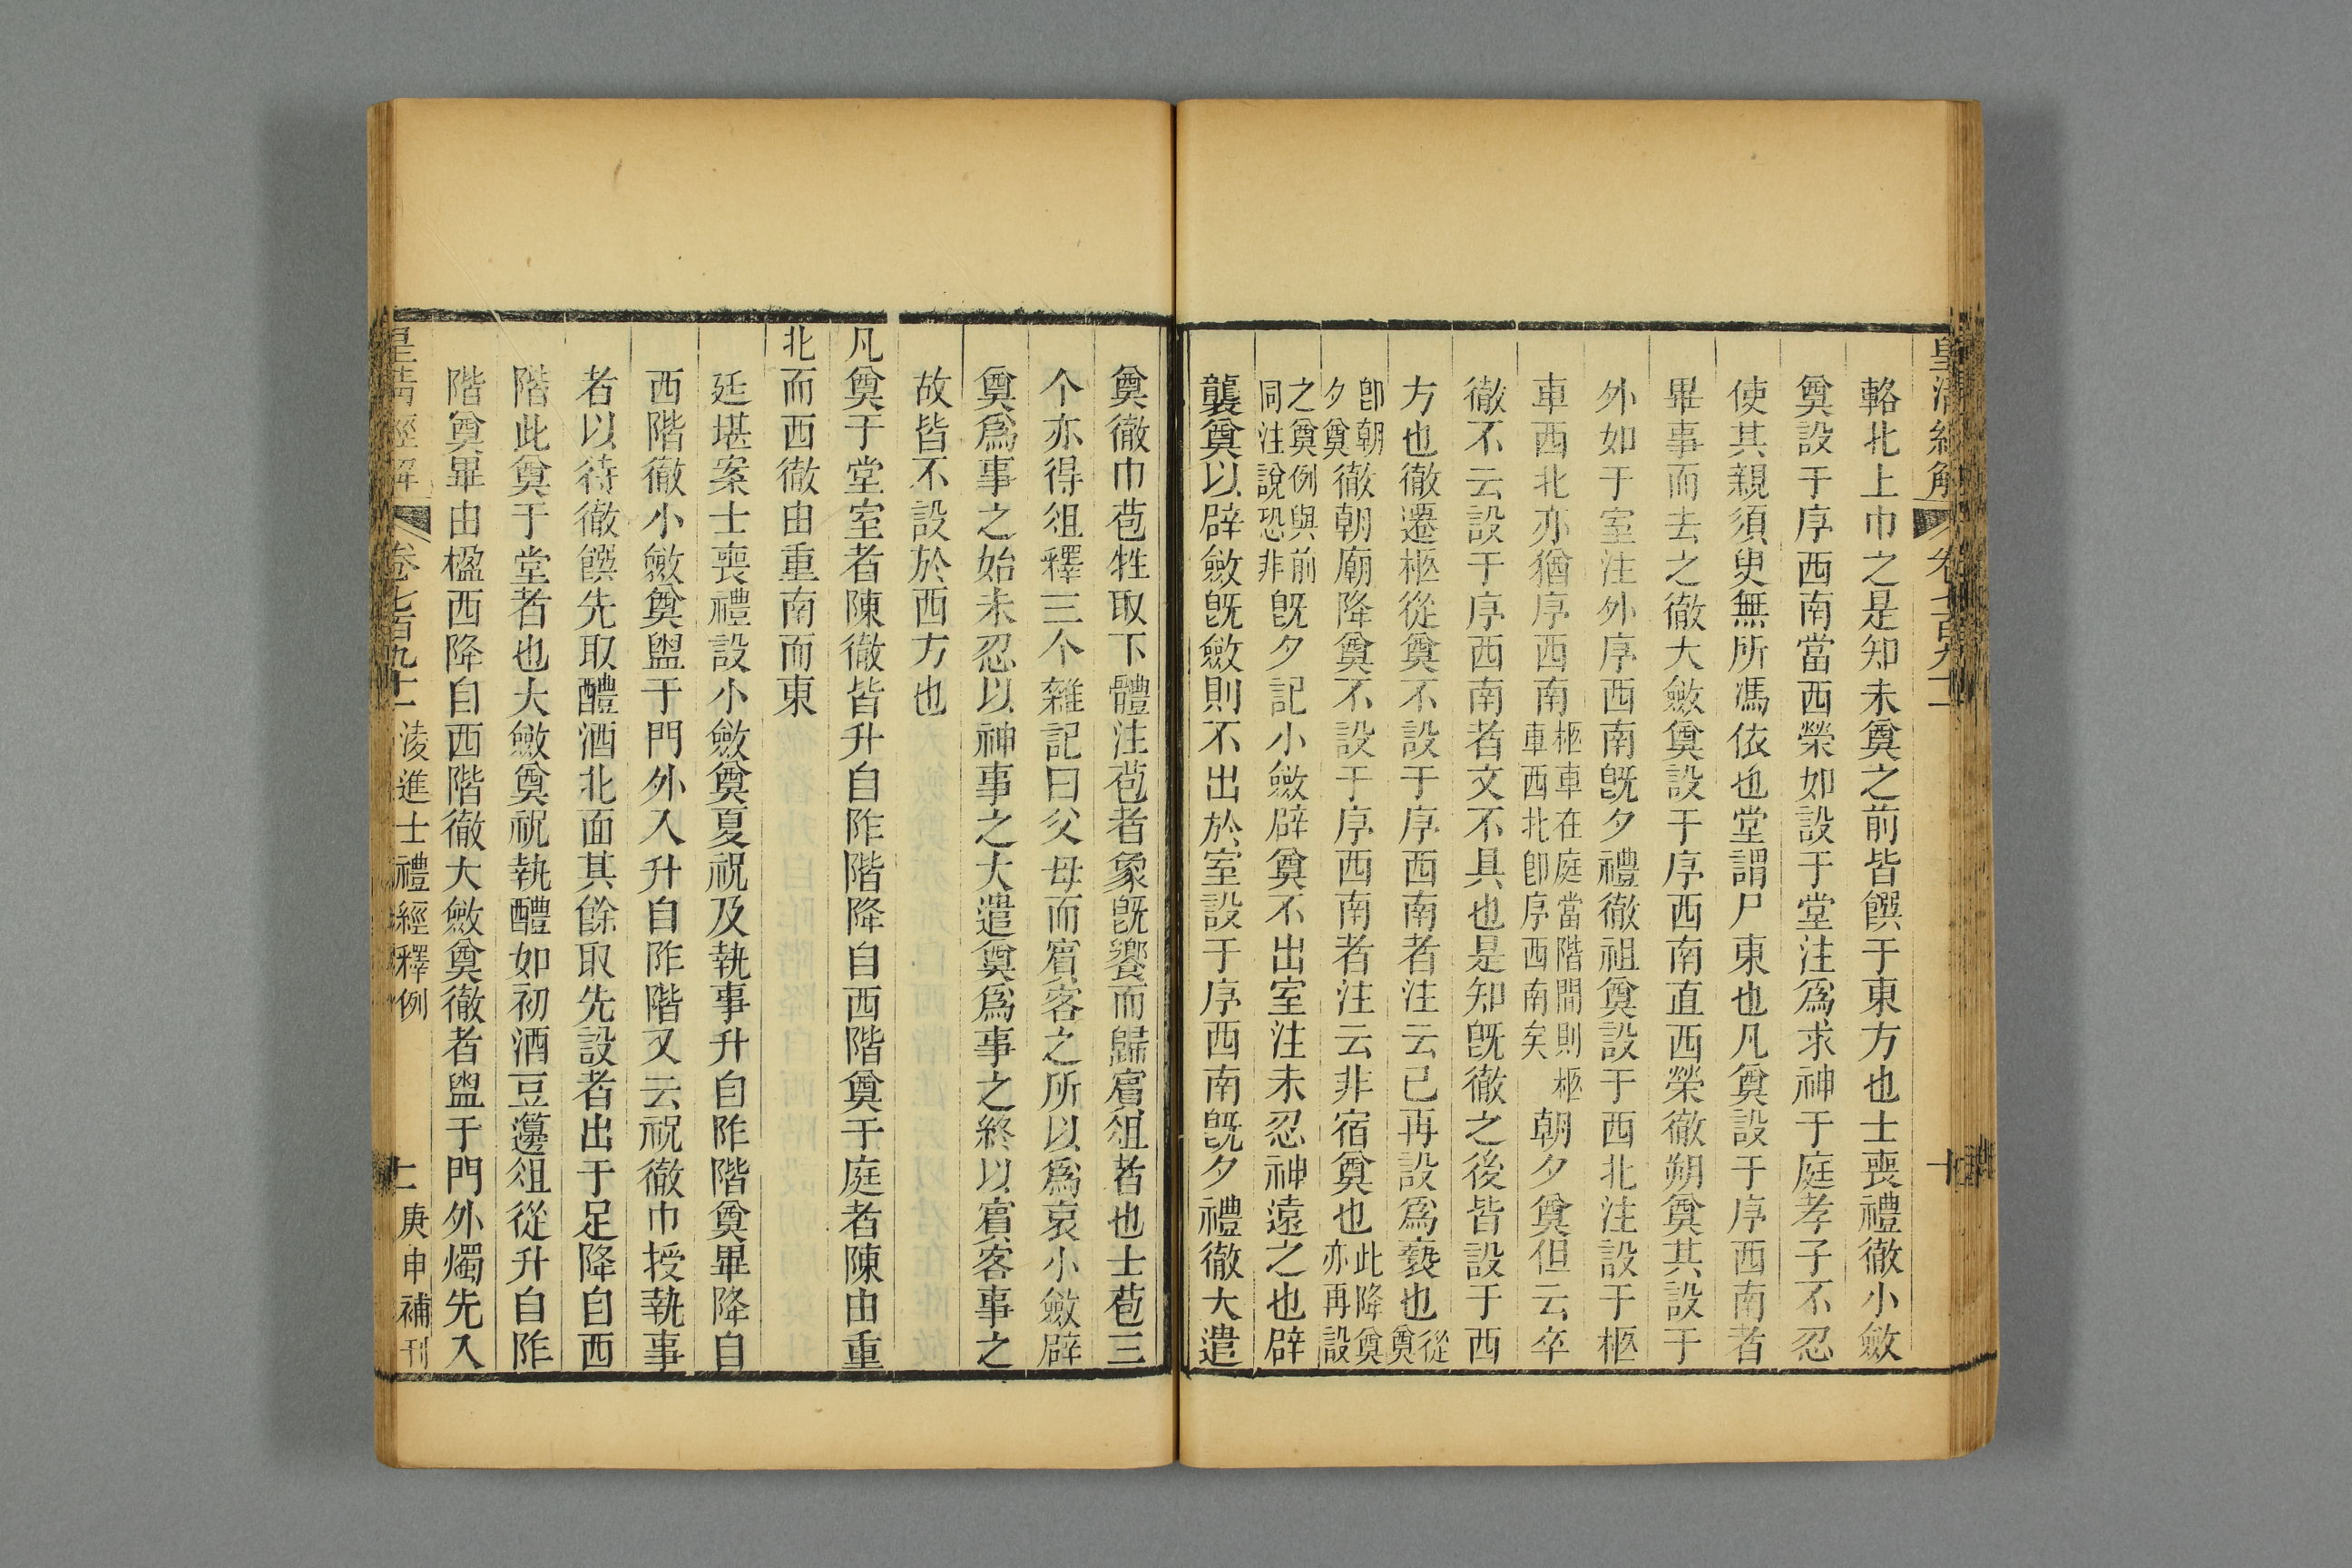 輅北上巾之是知未奠之前皆饌于東方也士喪禮徹小斂
奠設于序西南當西榮如設于堂注爲求神于庭孝子不忍
使其親須臾無所馮依也堂謂尸東也凡奠設于序西南者
畢事而去之徹大斂奠設于序西南直西榮徹朔奠其設于
外如于室注外序西南旣夕禮徹祖奠設于西北注設于柩
車西北亦猶序西南柩車在庭當階間則柩車西北卽序西南矣朝夕奠但云卒
徹不云設于序西南者文不具也是知旣徹之後皆設于西
方也徹遷柩從奠不設于序西南者注云已再設爲褻也從奠
卽朝夕奠徹朝廟降奠不設于序西南者注云非宿奠也此降奠亦再設
之奠例與前同注說恐非旣夕記小斂辟奠不出室注未忍神遠之也辟
襲奠以辟斂旣斂則不出於室設于序西南旣夕禮徹大遣
奠徹巾苞牲取下體注苞者象旣饗而歸賓俎者也士苞三
个亦得俎釋三个雜記曰父母而賓客之所以爲哀小斂辟
奠爲事之始未忍以神事之大遣奠爲事之終以賓客事之
故皆不設於西方也
凡奠于堂室者陳徹皆升自阼階降自西階奠于庭者陳由重
北而西徹由重南而東
廷堪案士喪禮設小斂奠夏祝及執事升自阼階奠畢降自
西階徹小斂奠盥于門外入升自阼階又云祝徹巾授執事
者以待徹饌先取醴酒北面其餘取先設者出于足降自西
階此奠于堂者也大斂奠祝執醴如初酒豆籩俎從升自阼
階奠畢由楹西降自西階徹大斂奠徹者盥于門外燭先入
皇清經解 卷七百九十一 淩進士禮經釋例 庚申補刊